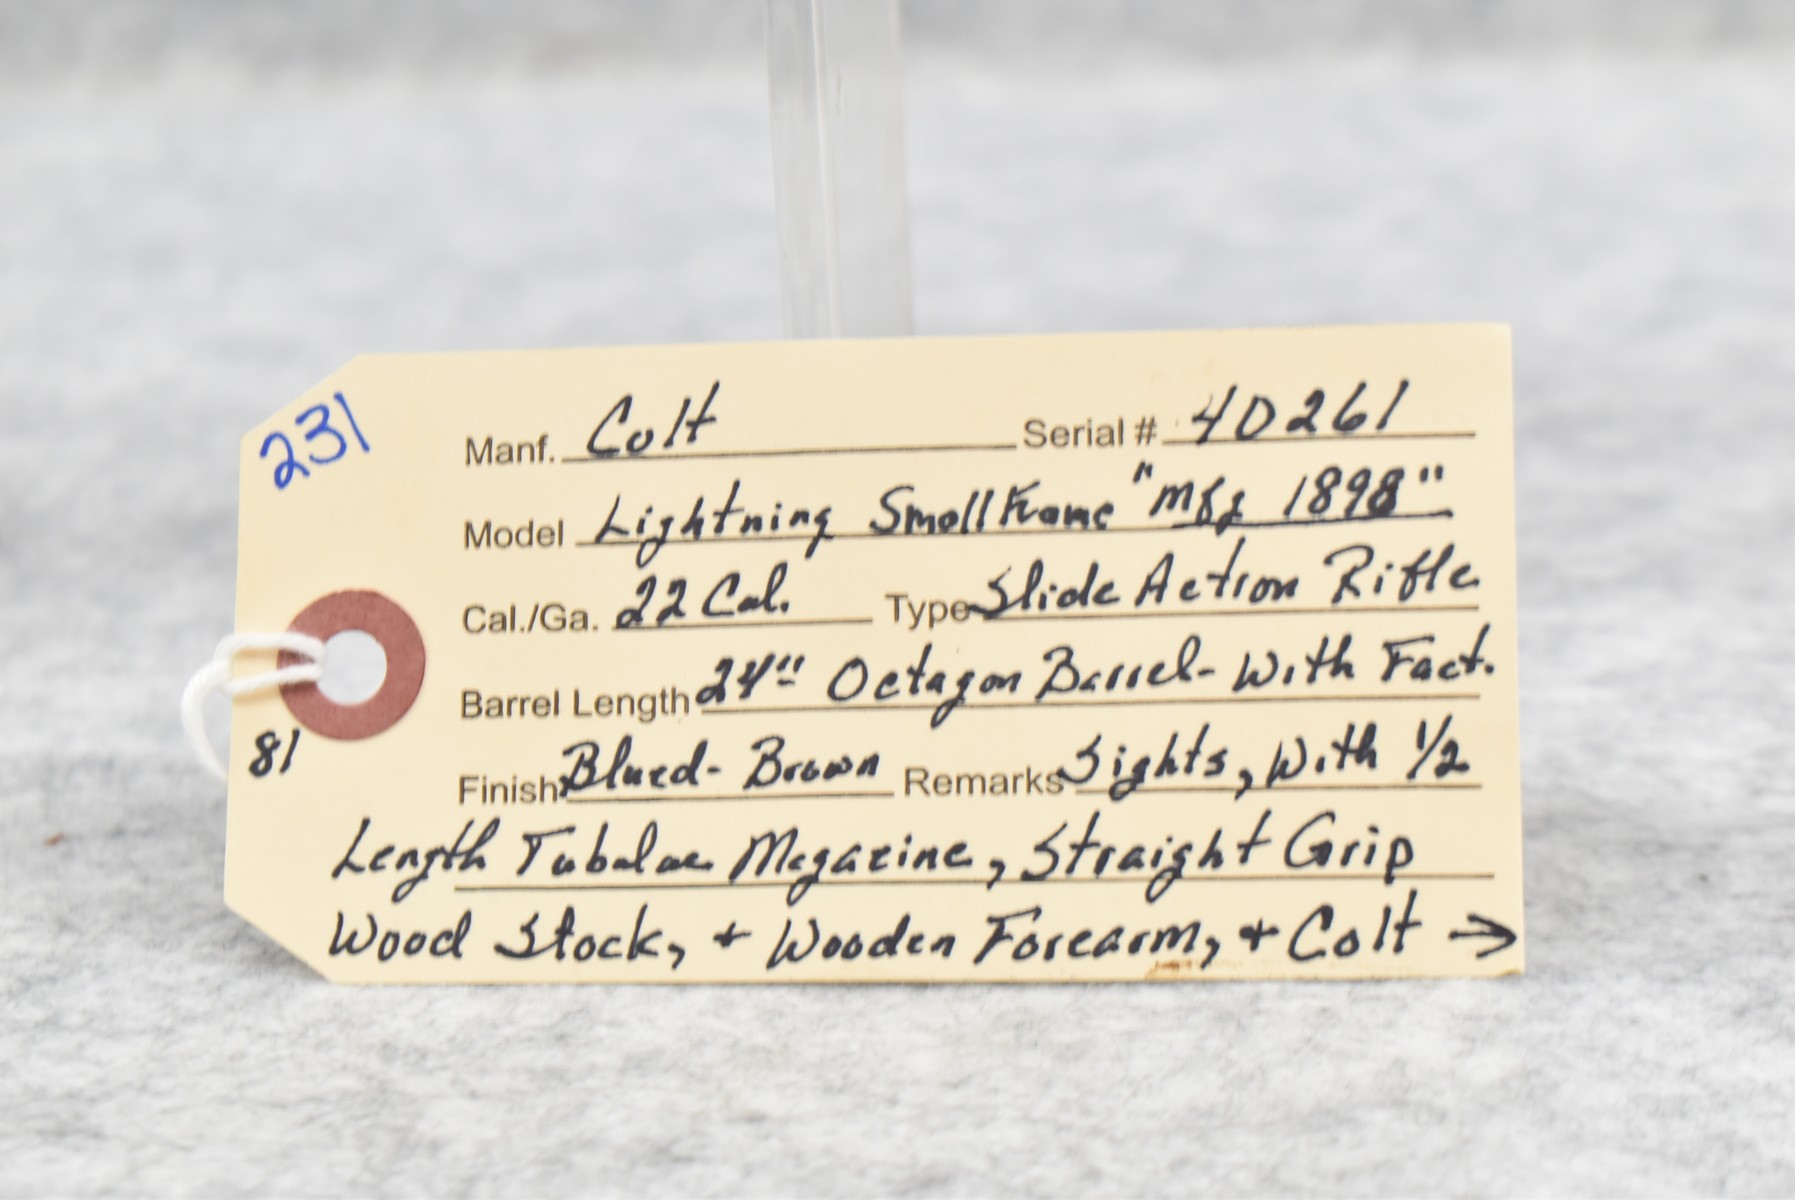 231
Manf. Colt Serial # 40261
Model Lightning Small Frame "Mfg 1898"
Cal./Ga. 22 Cal. Type Slide Action Rifle
Barrel Length 24" Octagon Barrel - With Fact.
81
Finish Blued - Brown Remarks Sights, With 1/2
Length Tubular Magazine, Straight Grip
Wood Stock, + Wooden Forearm, + Colt →